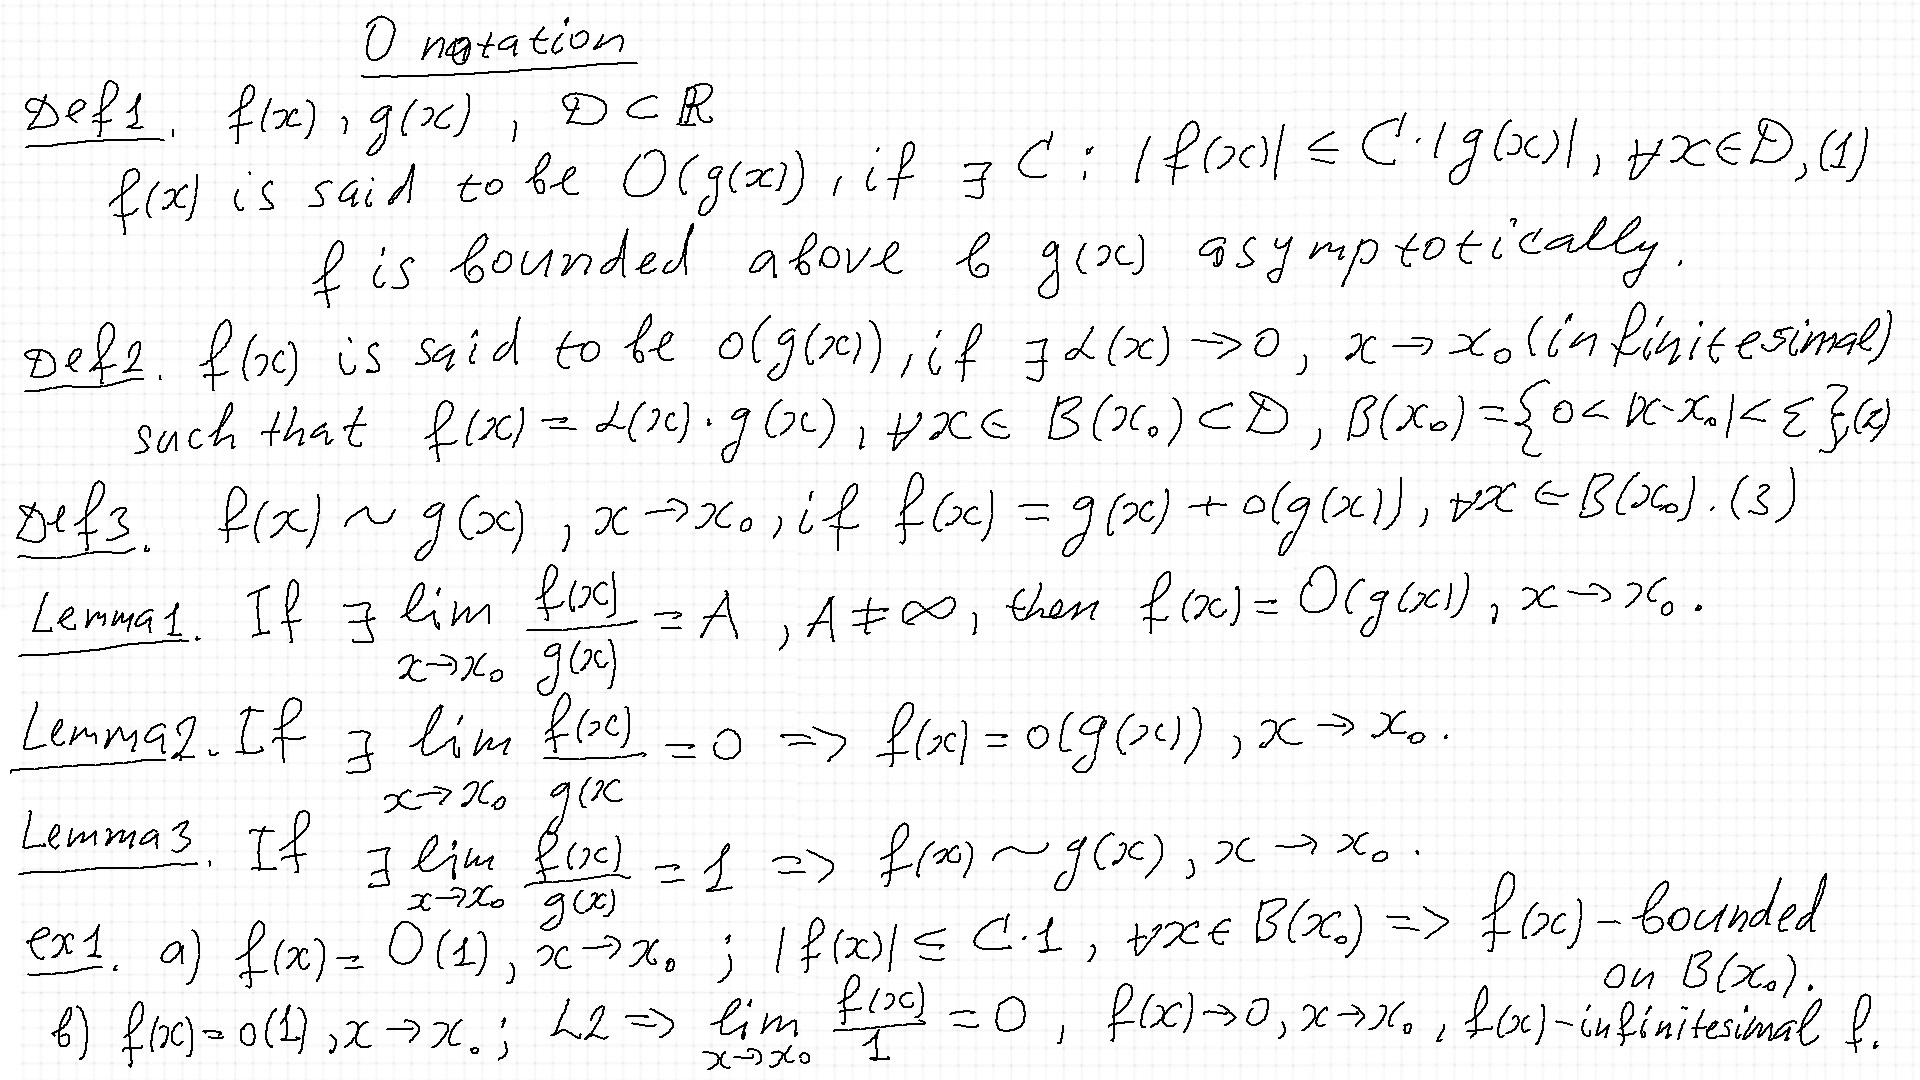 O notation
Def1. f(x), g(x), D ⊂ ℝ
f(x) is said to be O(g(x)), if ∃ C : |f(x)| ≤ C·|g(x)|, ∀x∈D, (1)
f is bounded above b g(x) asymptotically.
Def2. f(x) is said to be o(g(x)), if ∃ α(x) → 0, x → x₀ (infinitesimal)
such that f(x) = α(x)·g(x), ∀x∈ B(x₀) ⊂ D, B(x₀) = {0 < |x-x₀| < ε}, (2)
Def3. f(x) ~ g(x), x → x₀, if f(x) = g(x) + o(g(x)), ∀x ∈ B(x₀). (3)
Lemma1. If ∃ lim_{x→x₀} f(x)/g(x) = A, A ≠ ∞, then f(x) = O(g(x)), x → x₀.
Lemma2. If ∃ lim_{x→x₀} f(x)/g(x = 0 => f(x) = o(g(x)), x → x₀.
Lemma3. If ∃ lim_{x→x₀} f(x)/g(x) = 1 => f(x) ~ g(x), x → x₀.
ex1. a) f(x) = O(1), x → x₀ ; |f(x)| ≤ C·1, ∀x∈ B(x₀) => f(x) – bounded
on B(x₀).
b) f(x) = o(1), x → x₀; L2 => lim_{x→x₀} f(x)/1 = 0, f(x) → 0, x → x₀, f(x) – infinitesimal f.